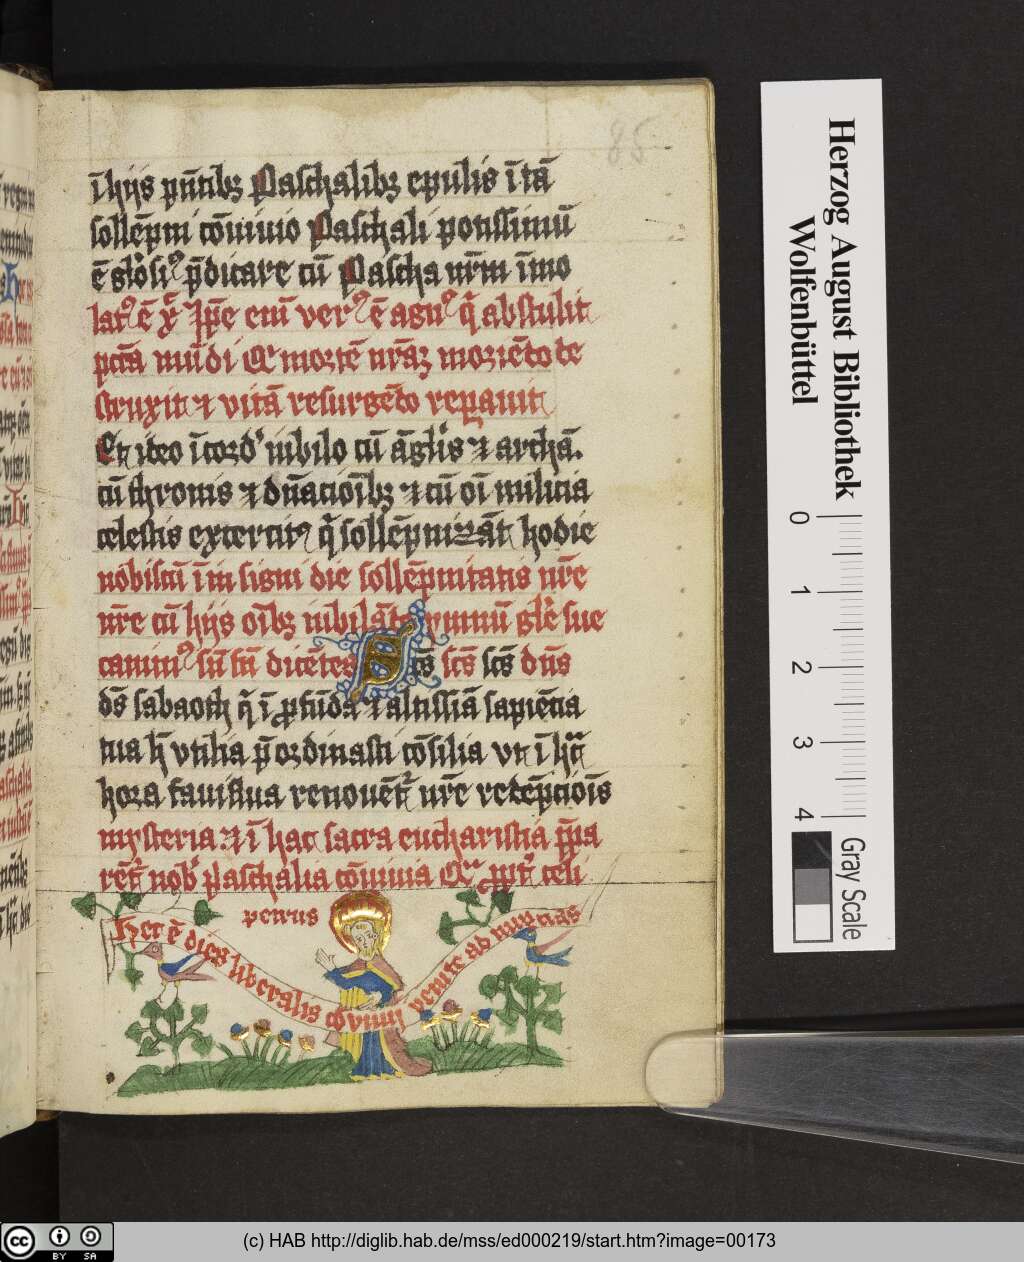 85
ī hijs p̄ntibꝫ Paschalibꝫ epulis ī tā
sollēpni cōviuio Paschali potissimū
ē glōsiꝰ p̄dicare cū Pascha nr̄m īmo
latꝰ ē xp̄c Ip̄e eni verꝰ ē agnꝰ q̄ abstulit
pctā mūdi Qͥ mortē nr̄aꝫ moriēdo de
struxit ⁊ vitā resurgēdo reꝑauit
Et ideo īcordꝰ iubilo cū āglis ⁊ archā.
cū thronis ⁊ dn̄acioībꝫ ⁊ cū oī milicia
celestis exercitꝰ q̄ sollēpnizāt hodie
nobiscū ī insigni die sollēpnitatis nr̄e
nr̄e cū hijs oībꝫ iubilāt ymnū glē sue
canimꝰ sn̄ fn̄ dicētes Scs̄ scs̄ scs̄ dn̄s
ds̄ sabaoth q̄ ī ꝓfūda ⁊ altissīa sapiētia
tua h̄ vtilia p̄ordinasti cōsilia vt ī hͣ
hora fauisſua renouēt nr̄e redēpciois̄
mysteria ⁊ ī hac sacra eucharistia p̄pa
rēt nobͥ Paschalia cōuiuia Qͣ ꝓpt̄ celi
petrus
Hec ē dies liberalis cōviuij petute ab nunctias
Herzog August Bibliothek
Wolfenbüttel
0 1 2 3 4
Gray Scale
cc BY SA
(c) HAB http://diglib.hab.de/mss/ed000219/start.htm?image=00173